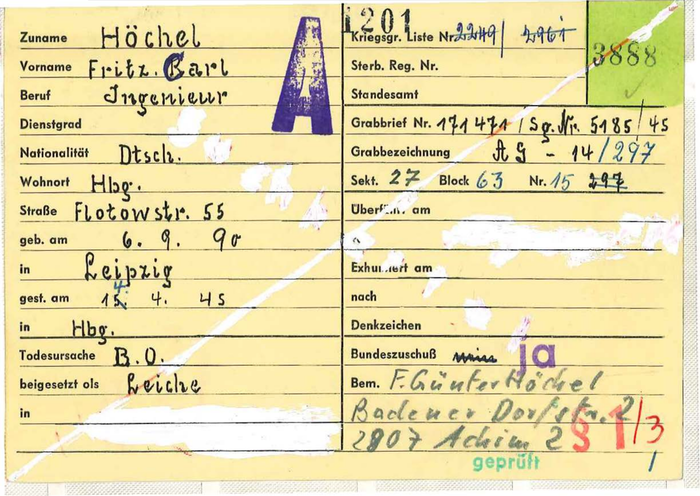 Zuname Höchel
Vorname Fritz. Carl
Beruf Ingenieur
Dienstgrad
Nationalität Dtsch.
Wohnort Hbg.
Straße Flotowstr. 55
geb. am 6. 9. 90
in Leipzig
gest. am 14. 4. 45
in Hbg.
Todesursache B.O.
beigesetzt als Leiche
in
A
1201
Kriegsgr. Liste Nr. 2249/ 2961
3888
Sterb. Reg. Nr.
Standesamt
Grabbrief Nr. 171471 / Sg. Nr. 5185/45
Grabbezeichnung AG - 14/297
Sekt. 27 Block 63 Nr. 15 297
Überführt am
Exhumiert am
nach
Denkzeichen
Bundeszuschuß ja
Bem. F. Günter Höchel
Badener Dorfstr. 2
2807 Achim 2
§ 1/3
geprüft
1